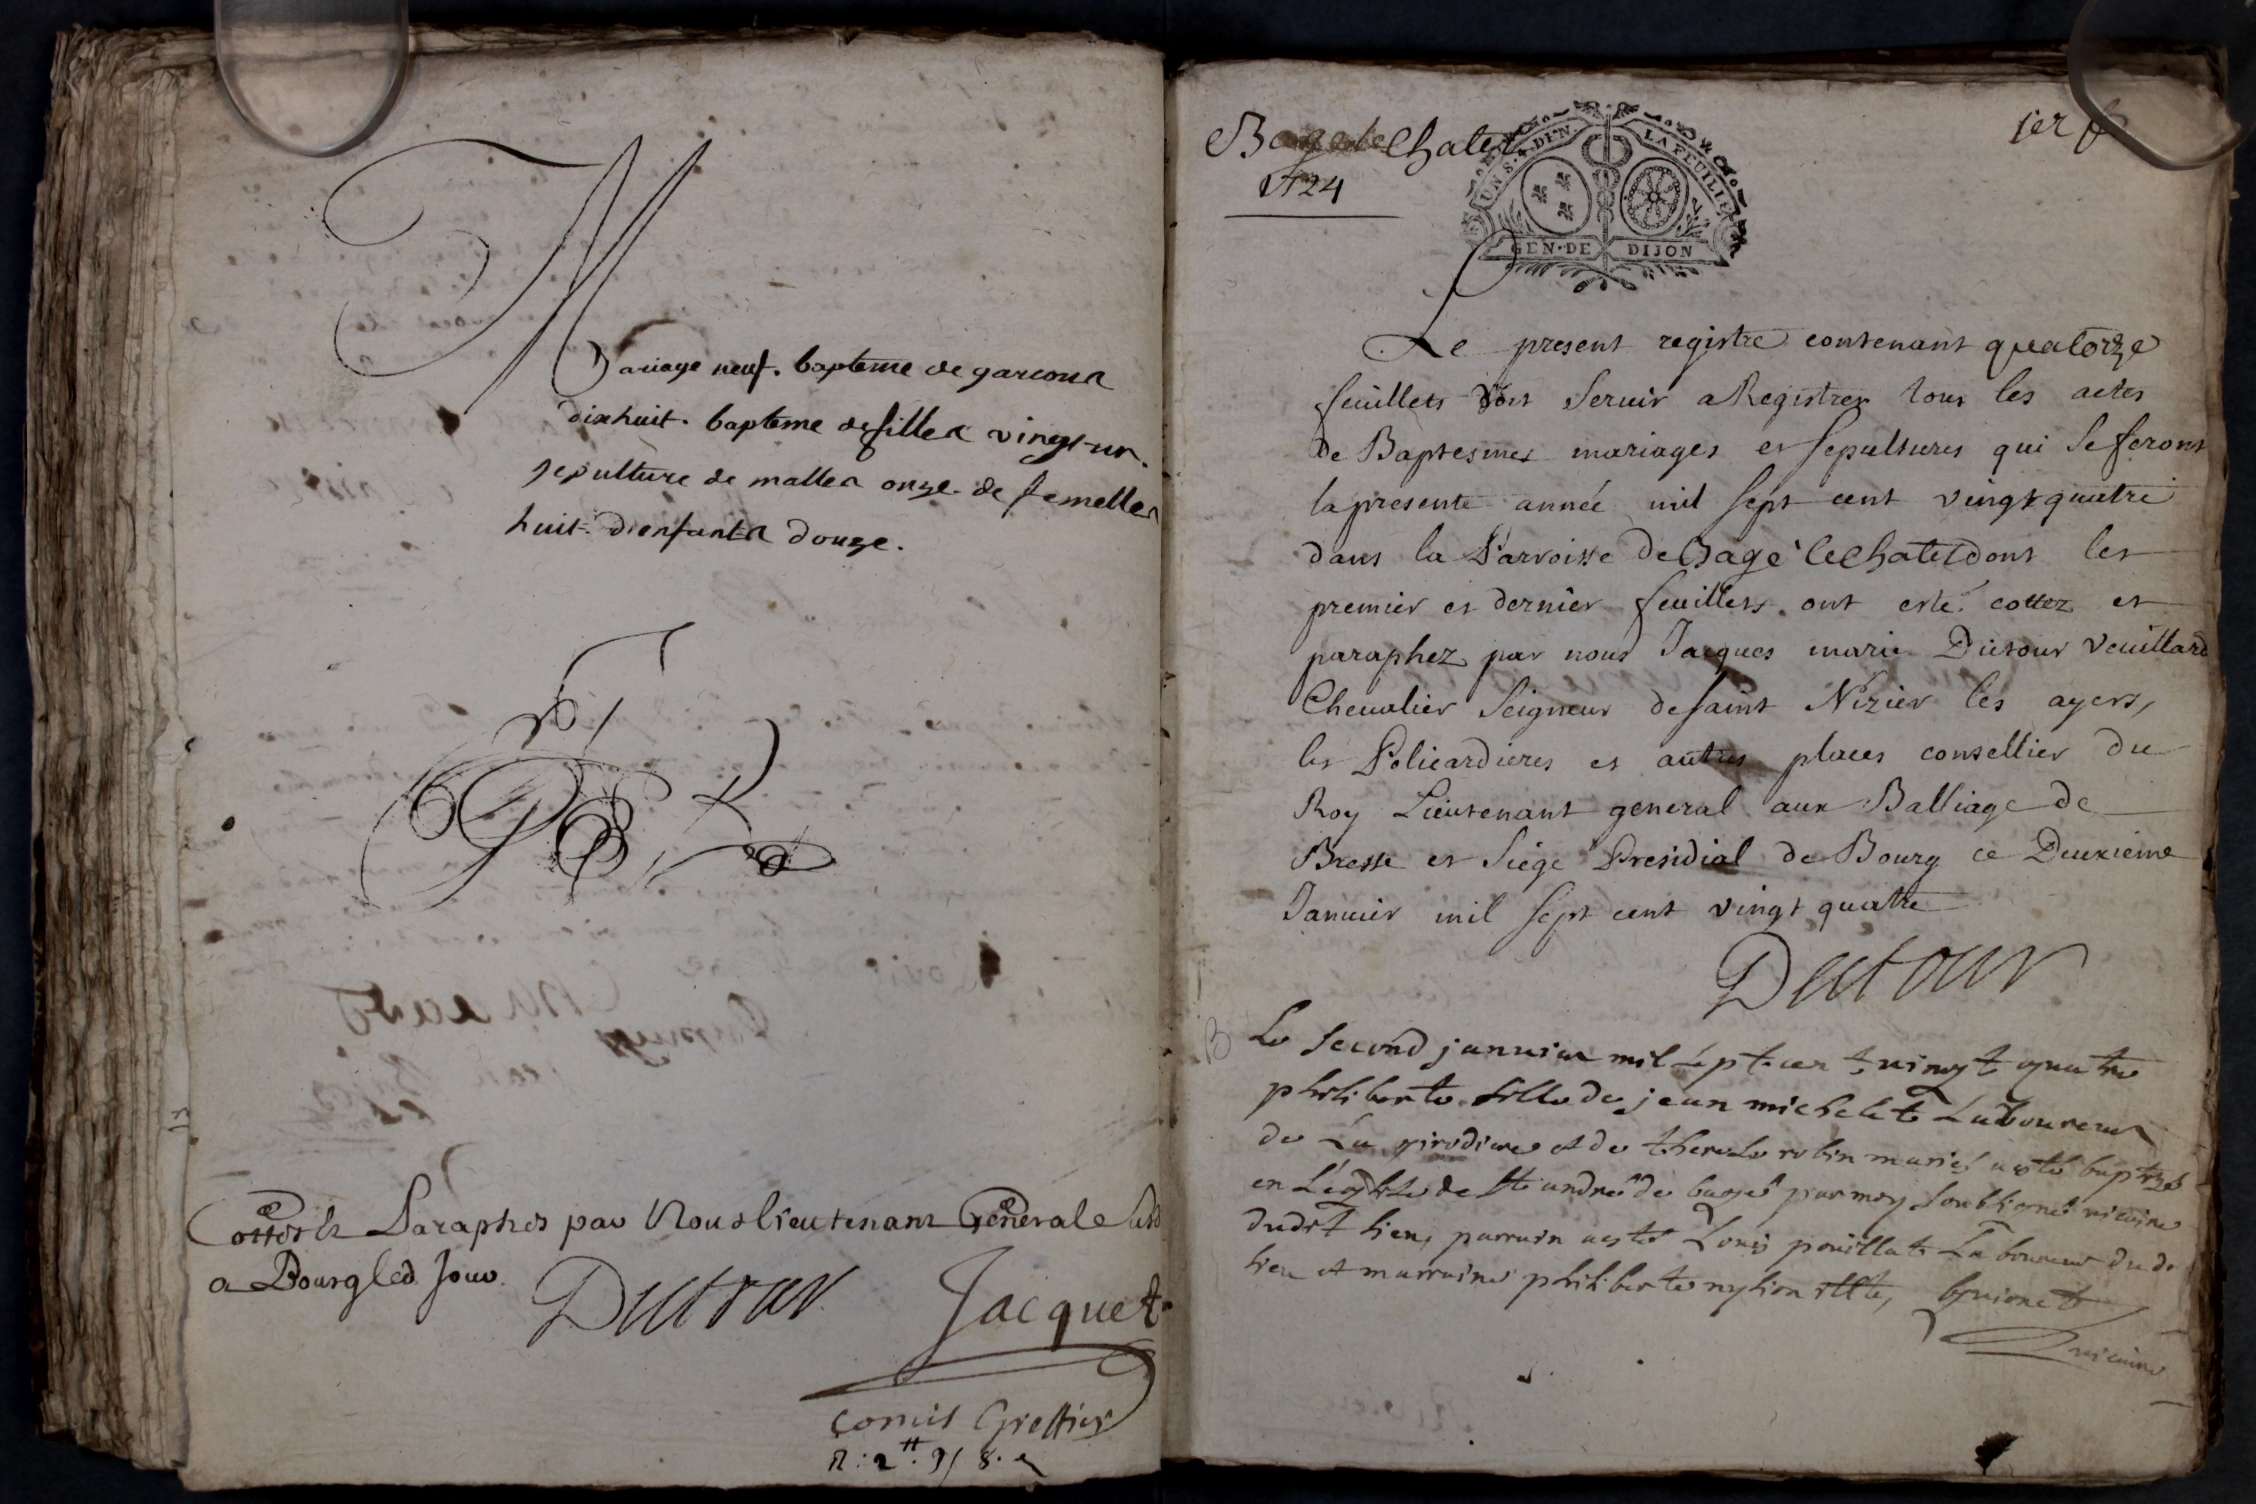 Mariage neuf. bapteme de garcons
dixhuit. bapteme de filles vingt-un.
sepulture de malles onze. de femelles
huit. d'enfants douze.
Cottes et Paraphes par Nous lieutenant General Susd
a Bourg led. Jour.
Dutour
Jacquet
comis Greffier
Bage le Chatel
1724
1er f
UN S. 4. DEN. LA FEUILLE
GEN. DE DIJON
Le present registre contenant quatorze
feuillets doit Servir a Registrer tous les actes
de Baptesmes mariages et Sepultures qui Se feront
la presente année mil Sept cent vingt quatre
dans la Parroisse de Bagé le Chatel dont les
premier et dernier feuillets ont esté cottez et
paraphez par nous Jacques marie Dutour Veuillard
Chevalier Seigneur de Saint Nizier les ayers,
les Policardieres et autres places consellier du
Roy Lieutenant general aux Balliage de
Bresse et Siége Presidial de Bourg ce Deuxieme
Janvier mil Sept cent vingt quatre
Dutour
B
Le Second janvier mil sept cent vingt quatre
philiberte fille de jean michelet Laboureur
de La et de therese robin mariés a esté baptizé
en L'eglise de St andré de bagé par moy soubsigné vicaire
dudit lieu, parrain a esté Louis pouillat Laboureur dudt
lieu et marraine philiberte
vicaire